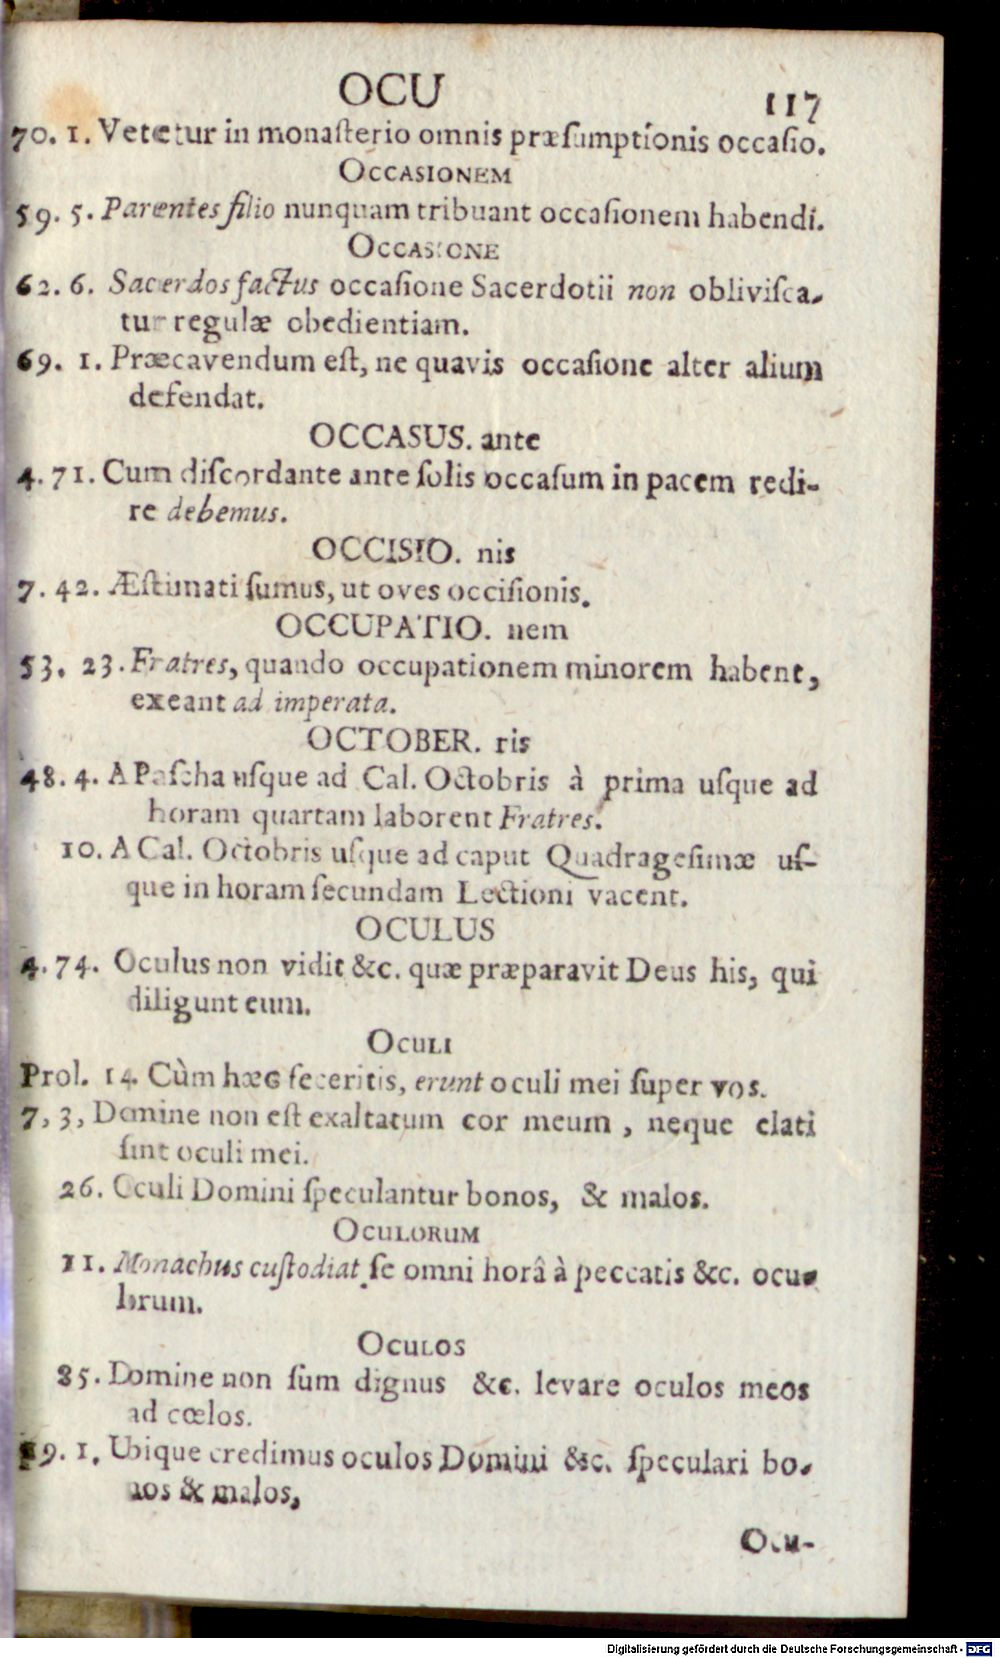 OCU 117
70. 1. Vetetur in monaſterio omnis præſumptionis occaſio.
OCCASIONEM
59. 5. Parentes filio nunquam tribuant occaſionem habendi.
OCCASIONE
62. 6. Sacerdos factus occaſione Sacerdotii non obliviſca-
tur regulæ obedientiam.
69. 1. Præcavendum eſt, ne quavis occaſione alter alium
defendat.
OCCASUS. ante
4. 71. Cum diſcordante ante ſolis occaſum in pacem redi-
re debemus.
OCCISIO. nis
7. 42. Æſtimati ſumus, ut oves occiſionis.
OCCUPATIO. nem
53. 23. Fratres, quando occupationem minorem habent,
exeant ad imperata.
OCTOBER. ris
48. 4. A Paſcha uſque ad Cal. Octobris à prima uſque ad
horam quartam laborent Fratres.
10. A Cal. Octobris uſque ad caput Quadrageſimæ uſ-
que in horam ſecundam Lectioni vacent.
OCULUS
4. 74. Oculus non vidit &c. quæ præparavit Deus his, qui
diligunt eum.
OCULI
Prol. 14. Cùm hæc feceritis, erunt oculi mei ſuper vos.
7, 3, Domine non eſt exaltatum cor meum, neque elati
ſint oculi mei.
26. Oculi Domini ſpeculantur bonos, & malos.
OCULORUM
11. Monachus cuſtodiat ſe omni horâ à peccatis &c. ocu-
lorum.
OCULOS
85. Domine non ſum dignus &c. levare oculos meos
ad cœlos.
19. 1. Ubique credimus oculos Domini &c. ſpeculari bo-
nos & malos,
Ocu-
Digitalisierung gefördert durch die Deutsche Forschungsgemeinschaft - DFG